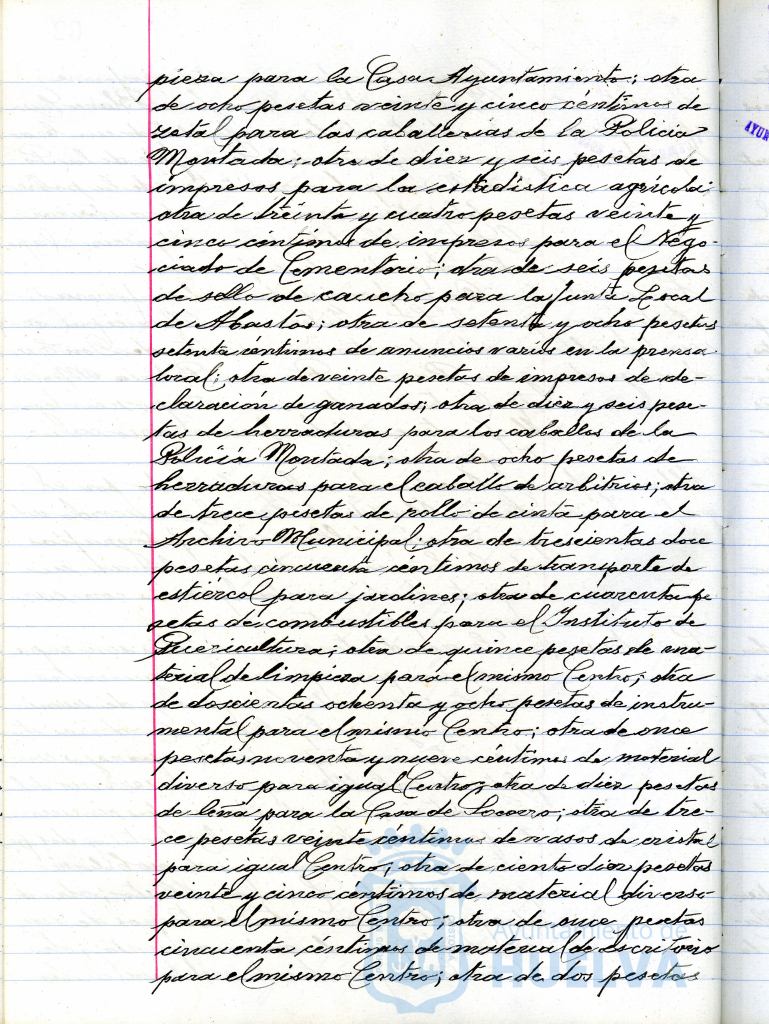 pieza para la Casa Ayuntamiento; otra
de ocho pesetas veinte y cinco céntimos de
zotal para las caballerias de la Policia
Montada; otra de diez y seis pesetas de
impresos para la estadistica agrícola;
otra de treinta y cuatro pesetas veinte y
cinco céntimos de impresos para el Nego-
ciado de Cementerio; otra de seis pesetas
de sello de caucho para la Junta Local
de Abastos; otra de setenta y ocho pesetas
setenta céntimos de anuncios varios en la prensa
local; otra de veinte pesetas de impresos de de-
claración de ganados; otra de diez y seis pese-
tas de herraduras para los caballos de la
Policia Montada; otra de ocho pesetas de
herraduras para el caballo de arbitrios; otra
de trece pesetas de rollo de cinta para el
Archivo Municipal; otra de trescientas doce
pesetas cincuenta céntimos de transporte de
estiércol para jardines; otra de cuarenta pe
setas de combustibles para el Instituto de
Puericultura; otra de quince pesetas de ma-
terial de limpieza para el mismo Centro; otra
de doscientas ochenta y ocho pesetas de instru-
mental para el mismo Centro; otra de once
pesetas noventa y nueve céntimos de material
diverso para igual Centro; otra de diez pesetas
de leña para la Casa de Socorro; otra de tre-
ce pesetas veinte céntimos de vasos de cristal
para igual Centro; otra de ciento diez pesetas
veinte y cinco céntimos de material diverso
para el mismo Centro; otra de once pesetas
cincuenta céntimos de material de escritorio
para el mismo Centro; otra de dos pesetas
Ayuntamiento de
HUELVA
AYUN